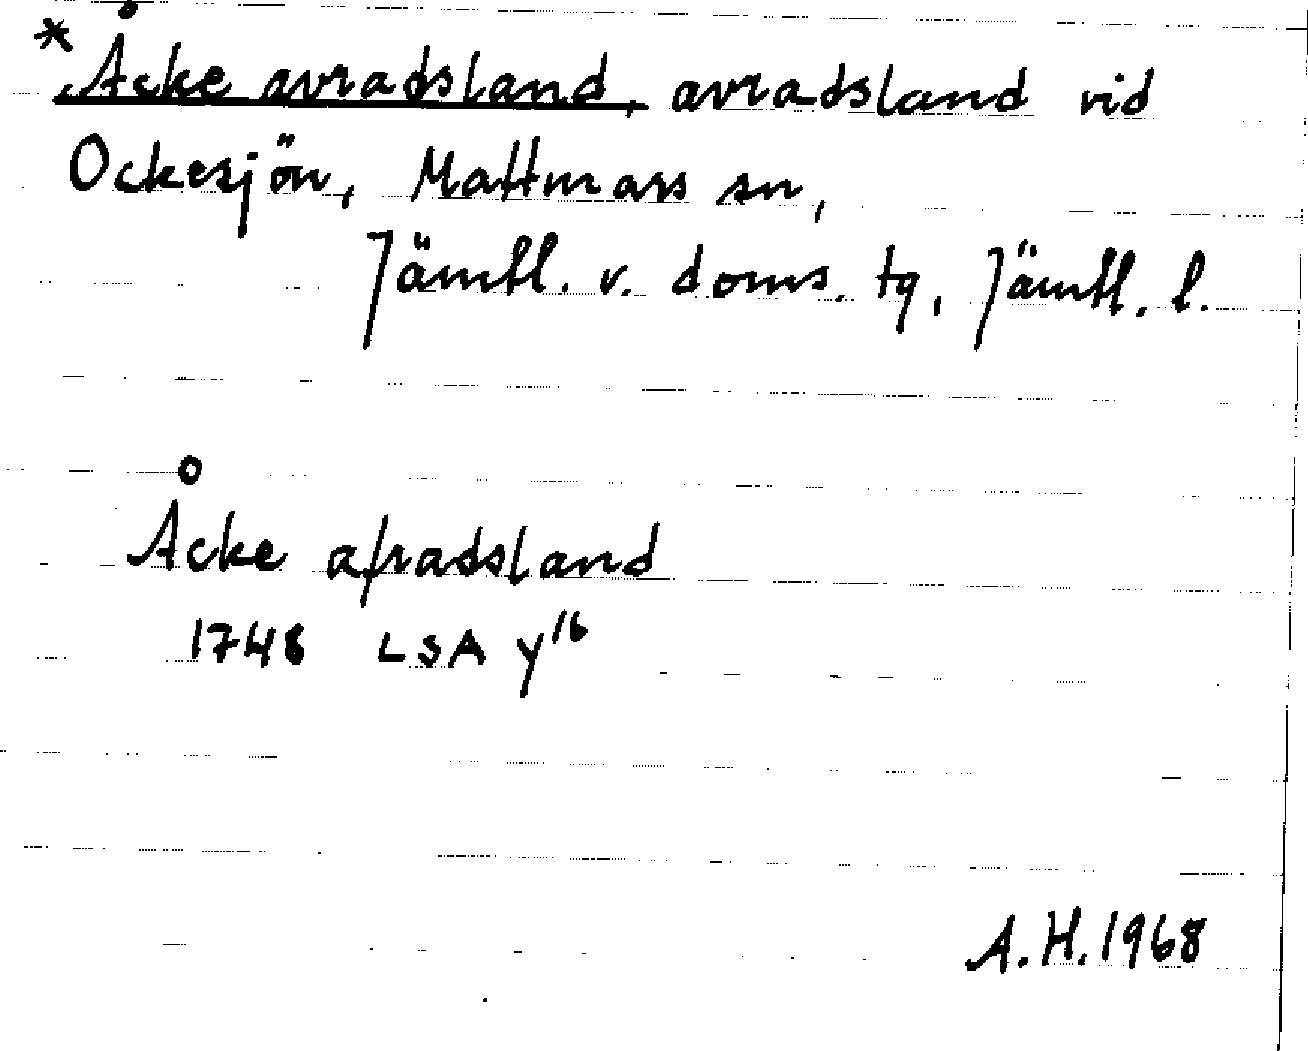 *Åcke avradsland, avradsland vid
Ockesjön, Mattmars sn,
Jämtl. v. doms. tg, Jämtl. l.
Åcke afradsland
1748 LSA y16
A.H. 1968